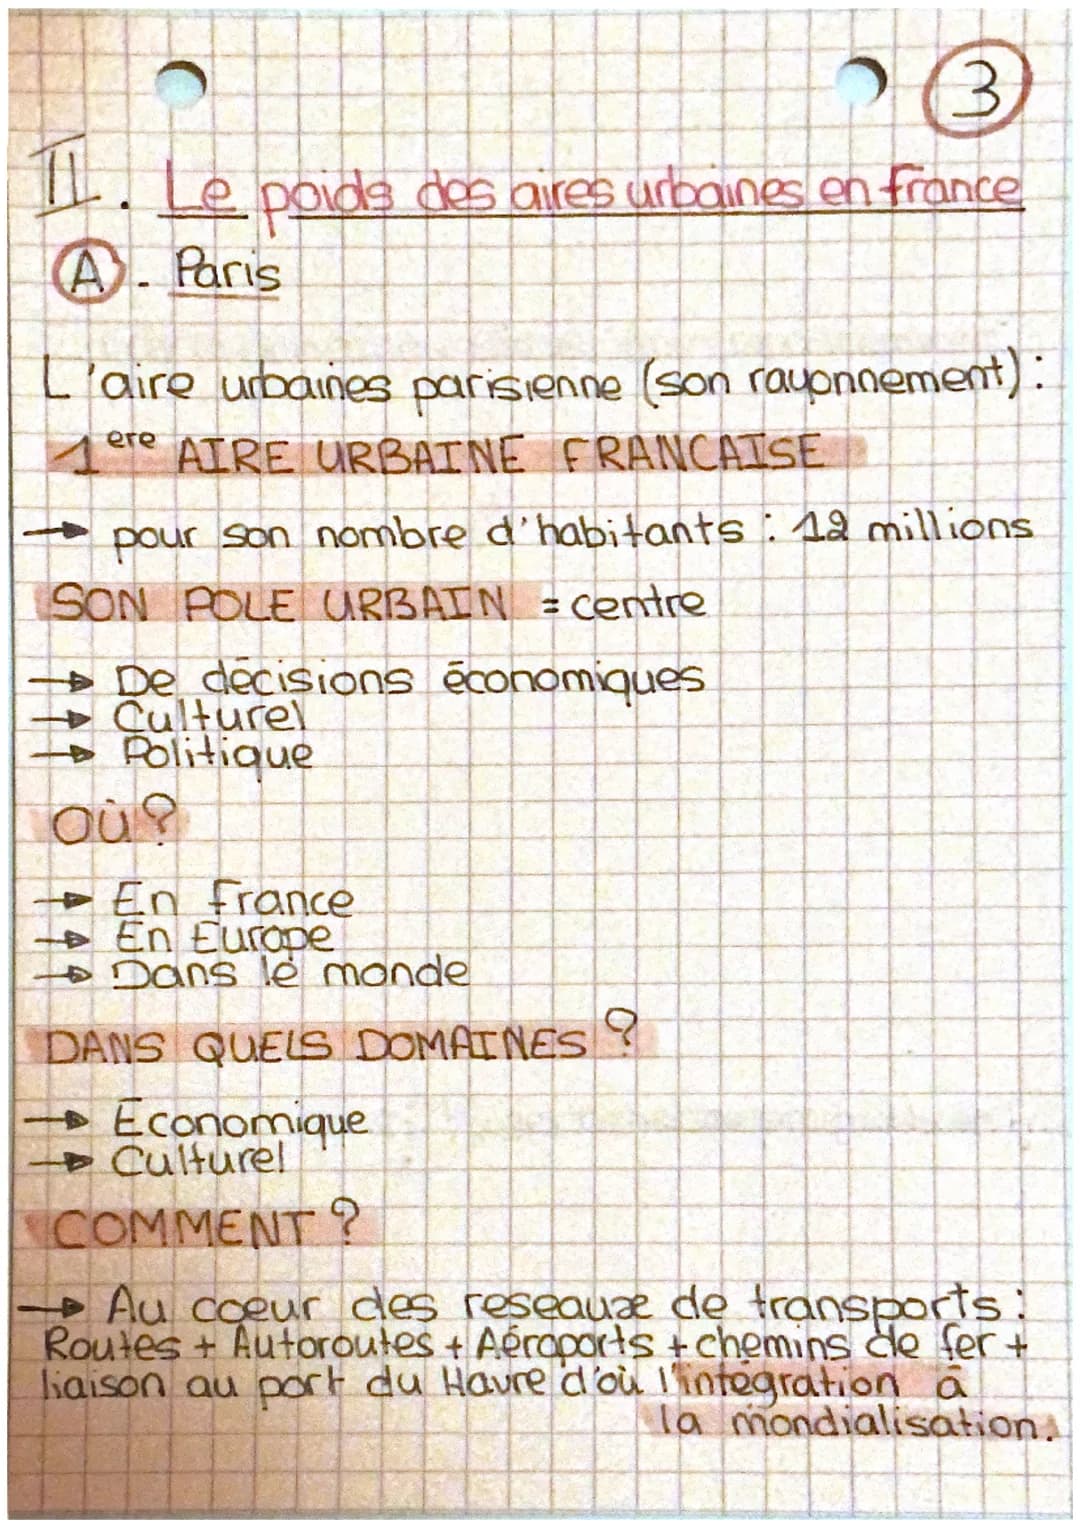 3
II. Le poids des aires urbaines en france
A. Paris
L'aire urbaines parisienne (son rayonnement) :
1ere AIRE URBAINE FRANCAISE
→ pour son nombre d'habitants : 12 millions
SON POLE URBAIN = centre
→ De décisions économiques
→ Culturel
→ Politique
OÙ ?
→ En france
→ En Europe
→ Dans le monde
DANS QUELS DOMAINES ?
→ Economique
→ Culturel
COMMENT ?
→ Au coeur des reseaux de transports :
Routes + Autoroutes + Aéroports + chemins de fer +
liaison au port du Havre d'où l'intégration à
la mondialisation.